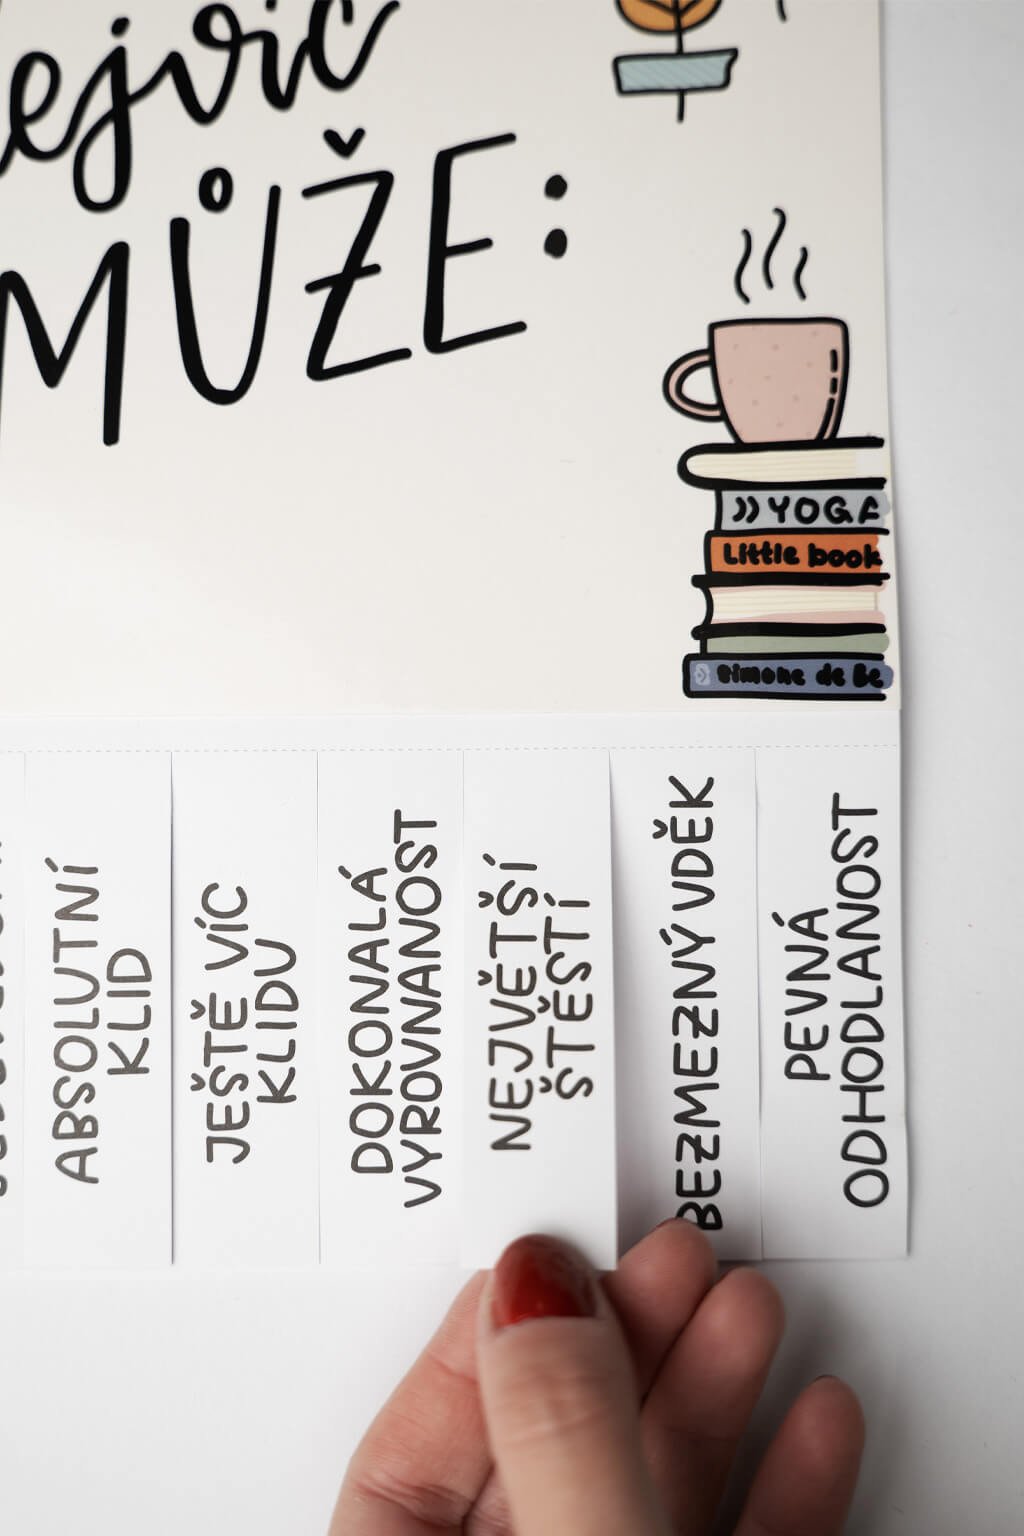 ejvíc
MŮŽE:
YOGA
Little book
Simone de Be
ABSOLUTNÍ
KLID
JEŠTĚ VÍC
KLIDU
DOKONALÁ
VYROVNANOST
NEJVĚTŠÍ
ŠTĚSTÍ
BEZMEZNÝ VDĚK
PEVNÁ
ODHODLANOST